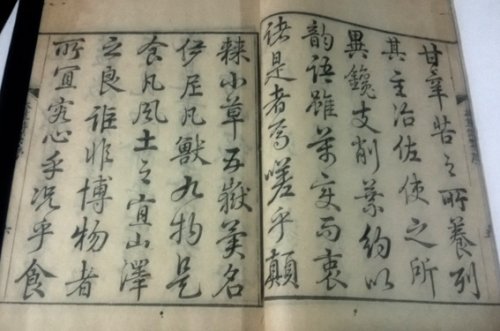 甘辛苦之所養列
其主治佐使之所
異鑱支削葉約以
韵语雖萬变而衷
诸是者焉嗟乎顛
棘小草五嶽異名
伊尼凡獸九物是
食凡風土之宜山澤
之良誰非博物者
所宜究心乎况乎食